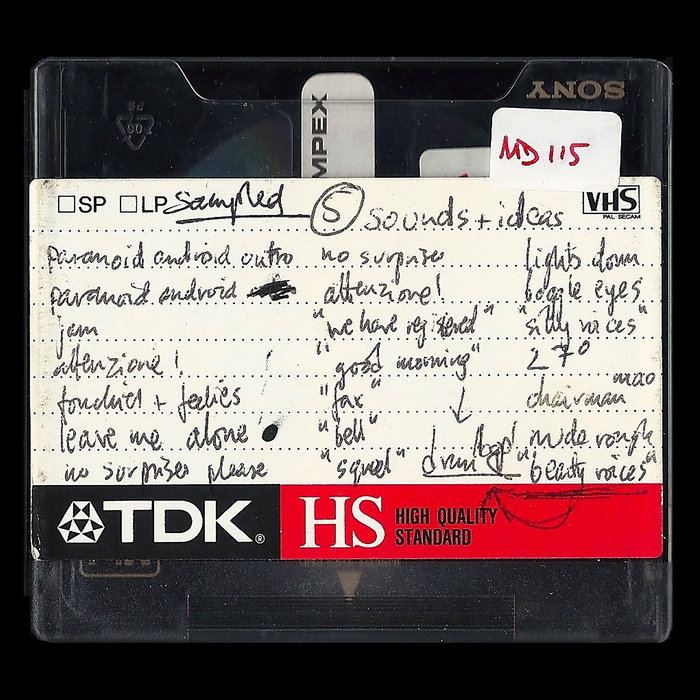 SONY
AMPEX
MD 115
SP LP Sampled 5 sounds + ideas
VHS
PAL SECAM
paranoid android outro
paranoid android
jam
attenzione!
touchies + feelies
leave me alone
no surprises please
no surprises
attenzione!
"we have registered"
"good morning"
"fax"
"bell"
"squeel"
drum loop!
lights down
boggle eyes
"silly voices"
27°
chairman mao
nude rough
"beauty voices"
TDK®
HS HIGH QUALITY
STANDARD